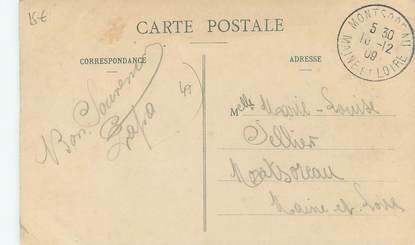 15€
CARTE POSTALE
CORRESPONDANCE
ADRESSE
MONTSOREAU
5 30
10 -12
09
MAINE ET LOIRE
Bon Souvenir
Papa
Melle Marie-Louise
Sellier
Montsoreau
Maine-et-Loire